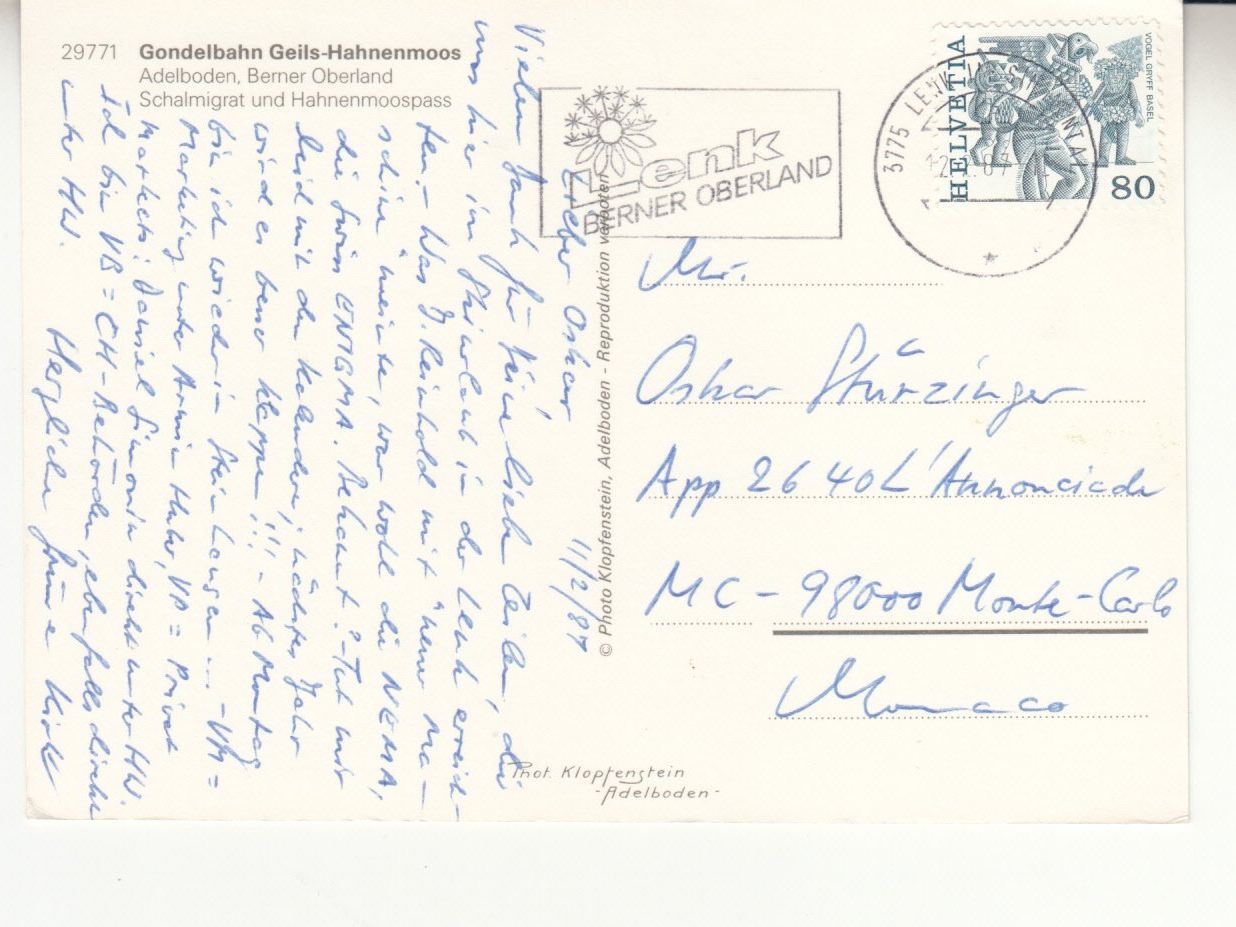 29771 Gondelbahn Geils-Hahnenmoos
Adelboden, Berner Oberland
Schalmigrat und Hahnenmoospass
Lenk
BERNER OBERLAND
3775 LENK IM SIMMENTAL
HELVETIA
VOGEL GRYFF BASEL
80
11/2/87
Lieber Oskar
Vielen Dank für Deine lieben Zeilen, die
uns hier im Skiurlaub in der Lenk erreich-
ten. - Was D. Reinhold mit "neuer Ma-
schine" meinte, war wohl die NEMA,
die Swiss ENIGMA. Bekannt? - Tut mir
leid mit dem Kalender; nächstes Jahr
wird es besser klappen!!! - Ab Montag
bin ich wieder in Steinhausen ... - VM =
Marketing unter Armin Huber, VP = Privat
Markets: Daniel direkt unter HW.
Ich bin VB = CH-Behörden, ebenfalls direkt
unter HW.
Herzliche Grüsse
© Photo Klopfenstein, Adelboden - Reproduktion verboten
Mr.
Oskar Stürzinger
App 26 40 L'Annonciade
MC - 98000 Monte-Carlo
Monaco
Phot. Klopfenstein
-Adelboden-